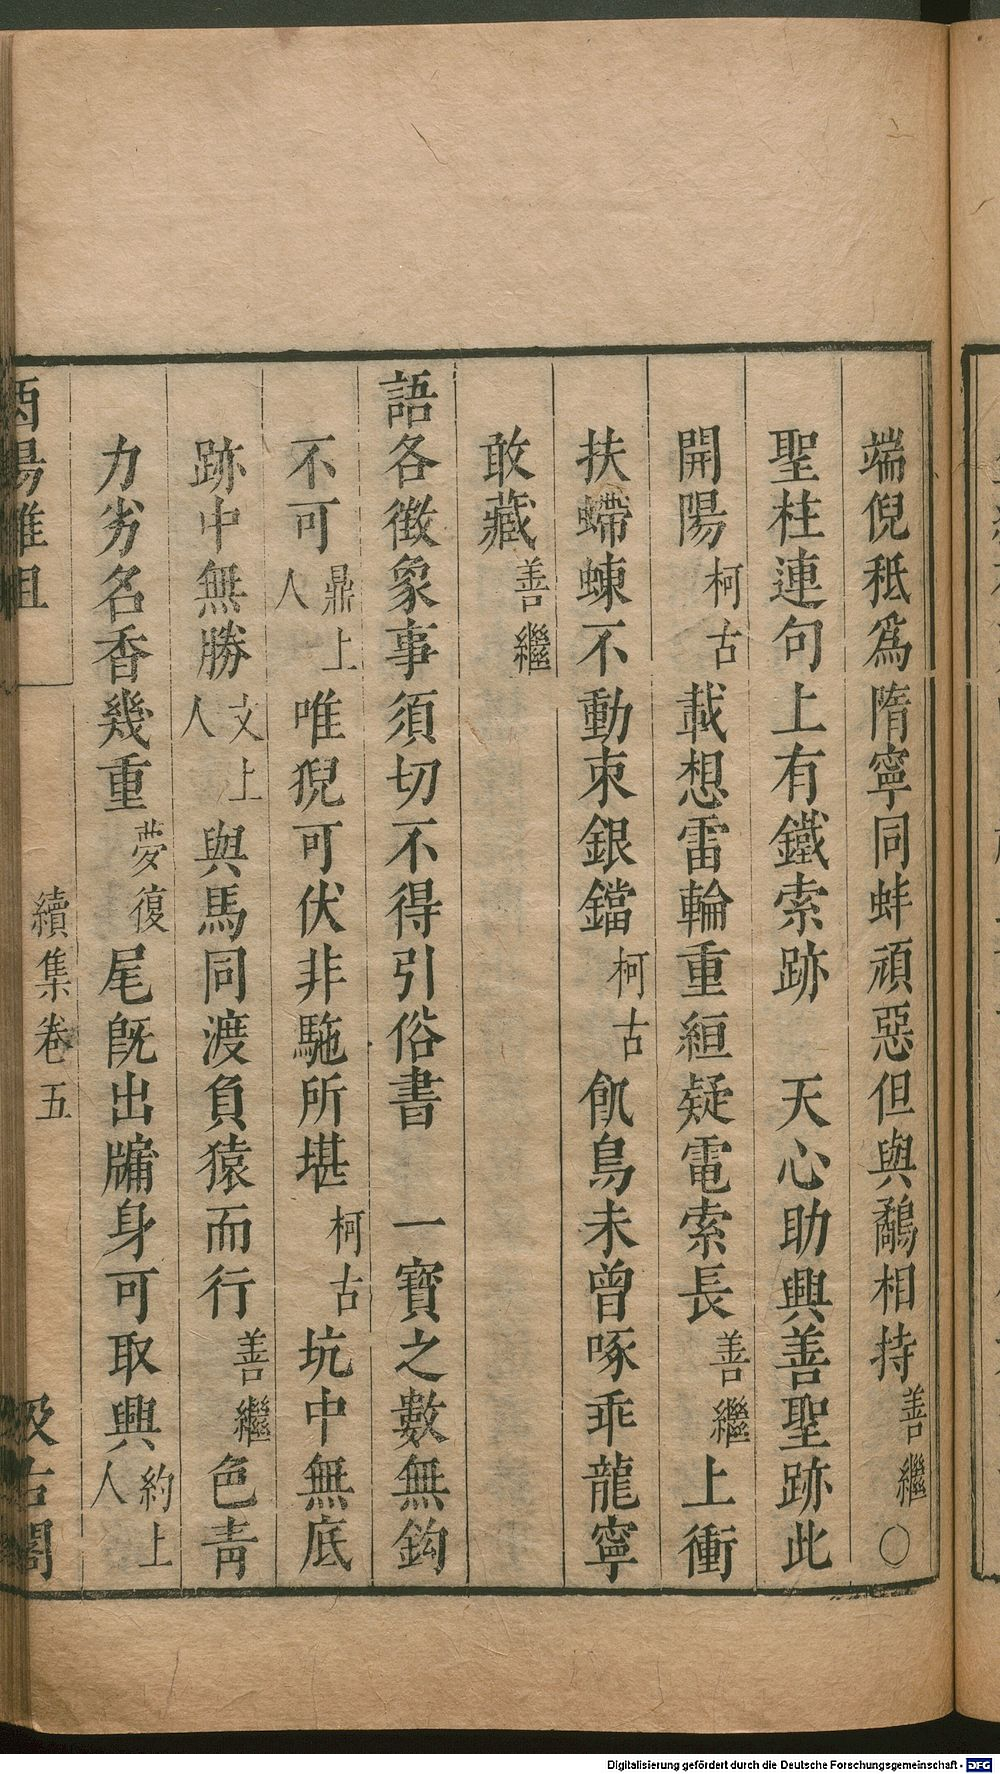 端倪秪爲隋寧同蚌頑惡但與鷸相持善繼〇
聖柱連句上有鐵索跡　天心助興善聖跡此
開陽柯古　載想雷輪重縆疑電索長善繼上衝
扶螮蝀不動束銀鐺柯古　飢鳥未曾啄乖龍寧
敢藏善繼
語各徵象事須切不得引俗書　一寳之數無鈎
不可鼎上人　唯猊可伏非駞所堪柯古　坑中無底
跡中無勝文上人　與馬同渡負猿而行善繼色青
力劣名香幾重夢復尾旣出牖身可取興約上人
酉陽雜俎
續集卷五
汲古閣
Digitalisierung gefördert durch die Deutsche Forschungsgemeinschaft - DFG